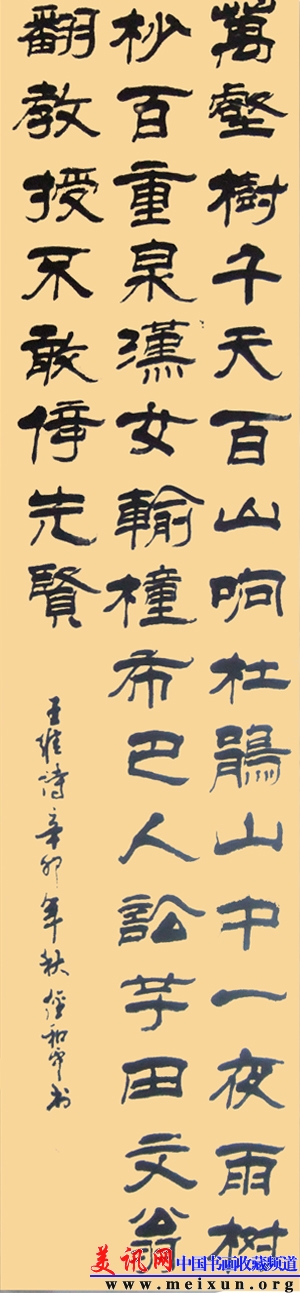 萬壑樹千天百山响杜鵑山中一夜雨树
杪百重泉漢女輸橦布巴人訟芋田文翁
翻教授不敢倚先賢
王維詩辛卯年秋和平书
美讯网 中国书画收藏频道
www.meixun.org